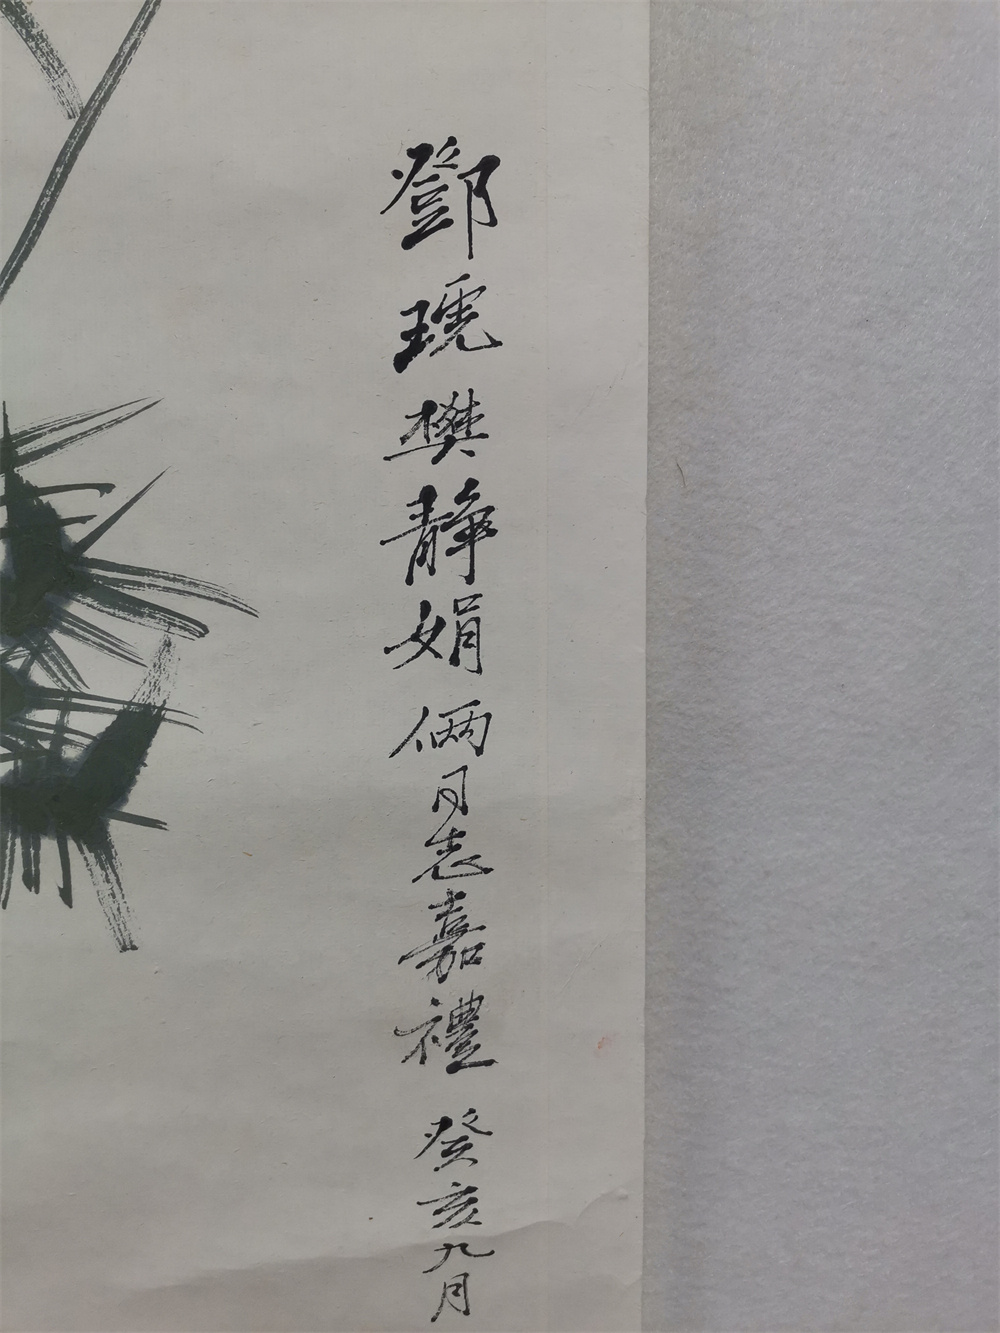 鄧琥樊靜娟俩同志嘉禮
癸亥九月